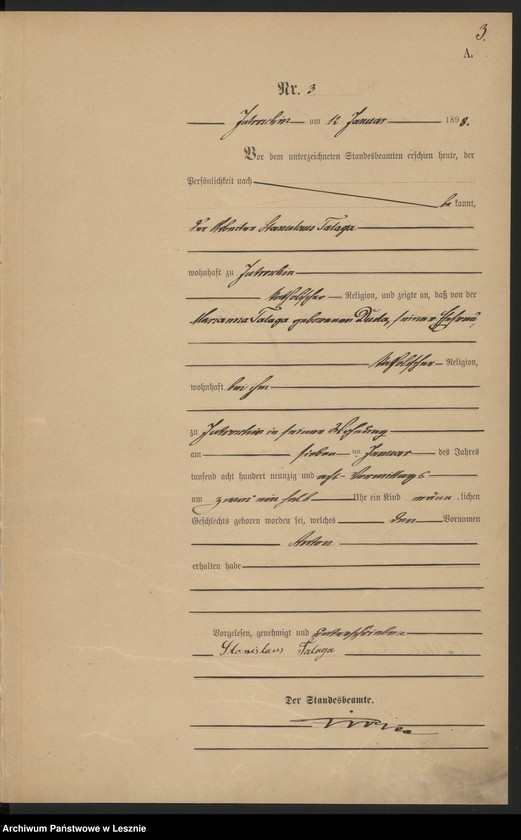 3.
A.
Nr. 3
Jutroschin am 12 Januar 1898.
Vor dem unterzeichneten Standesbeamten erschien heute, der
Persönlichkeit nach
be kannt,
der Arbeiter Stanislaus Talaga
wohnhaft zu Jutroschin
katholischer Religion, und zeigte an, daß von der
Marianna Talaga geborenen Duda, seiner Ehefrau,
katholischer Religion,
wohnhaft bei ihm
zu Jutroschin in seiner Wohnung
am sieben ten Januar des Jahres
tausend acht hundert neunzig und acht Vormittags
um zwei ein halb Uhr ein Kind männ lichen
Geschlechts geboren worden sei, welches den Vornamen
Anton
erhalten habe
Vorgelesen, genehmigt und unterschrieben
Stanislaus Talaga
Der Standesbeamte.
Archiwum Państwowe w Lesznie